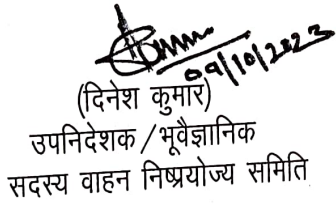 09/10/2023
(दिनेश कुमार)
उपनिदेशक / भूवैज्ञानिक
सदस्य वाहन निष्प्रयोज्य समिति